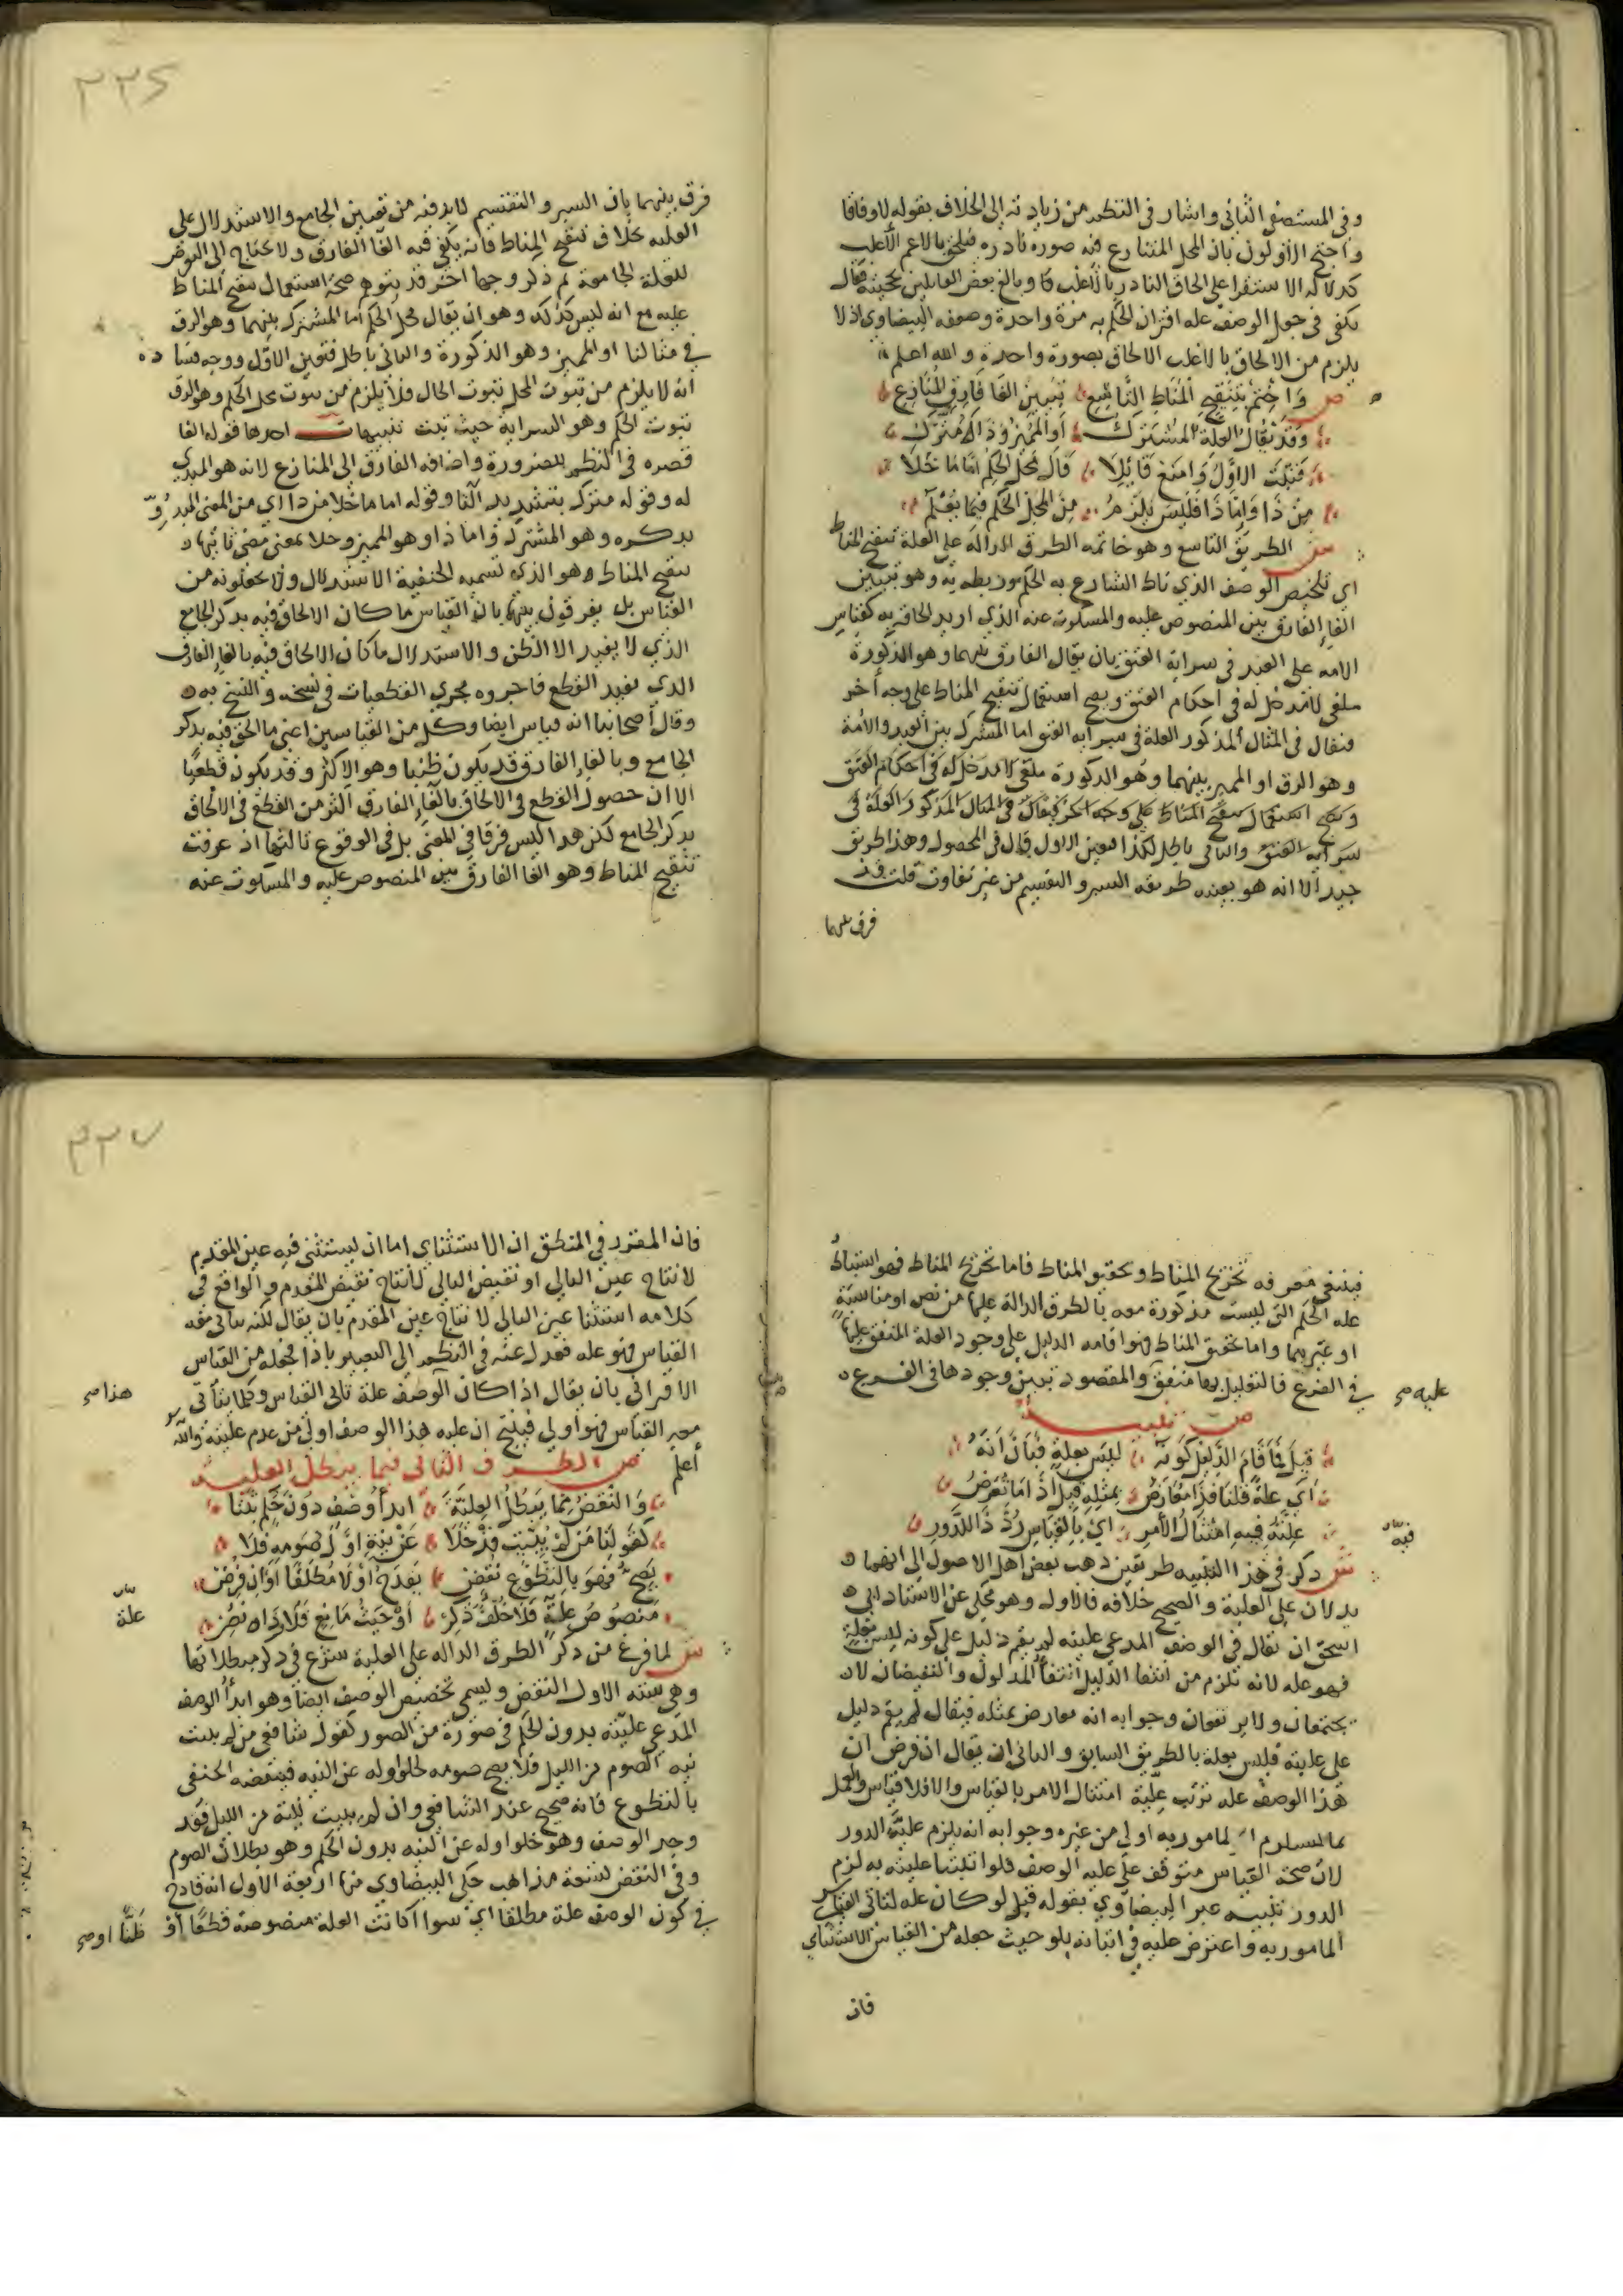 وفي المستصفى الثاني واشار في النظم من زيادته الى الخلاف بقوله لا وفاقا
واحتج الاولون بان المحل المتنازع فيه صورة نادرة فيلحق بالاعم الاغلب
كدلالة الاستقرا على الحاق النادر بالاغلب وبالغ بعض القايلين بحجيته فقال
يكفي في جعل الوصف علة اقتران الحكم به مرة واحدة وضعفه البيضاوي اذ لا
يلزم من الالحاق بالاغلب الالحاق بصورة واحدة والله اعلم
ص واختم بتنقيح المناط التاسع تبيين الغا فارق المنازع
وقد يقال العلة المشترك او المميز وذا لا مترك
فيثبت الاول وامنع قائلا قال محل الحكم اما ما خلا
من ذا واما ذا فليس يلزم من المحل الحكم فيما يعلم
ش الطريق التاسع وهو خاتمة الطرق الدالة على العلة تنقيح المناط
اي تلخيص الوصف الذي ناط الشارع به الحكم وربطه به وهو تبيين
الغا الفارق بين المنصوص عليه والمسكوت عنه الذي اريد الحاقه به كقياس
الامه على العبد في سراية العتق بان يقال الفارق بينهما وهو الذكورة
ملغى لا مدخل له في احكام العتق ويصح استعمال تنقيح المناط على وجه اخر
فيقال في المثال المذكور العلة في سراية العتق اما المشترك بين العبد والامة
وهو الرق او المميز بينهما وهو الذكورة ملغى لا مدخل له في احكام العتق
ويصح استعمال تنقيح المناط على وجه اخر فيقال في المثال المذكور العلة في
سراية العتق والثاني باطل لكذا فتعين الاول قال في المحصول وهذا طريق
جيد الا انه هو بعينه طريقه السبر والتقسيم من غير تفاوت قلت قد
فرق بينهما
٣٢٦
فرق بينهما بان السبر والتقسيم لا بد فيه من تعيين الجامع والاستدلال على
العليه بخلاف تنقيح المناط فانه يكفي فيه الغا الفارق ولا يحتاج الى التعرض
للعلة الجامعة ثم ذكر وجها اخر قد يتوهم صحة استعمال تنقيح المناط
عليه مع انه ليس كذلك وهو ان يقال محل الحكم اما المشترك بينهما وهو الرق
في مثالنا او المميز وهو الذكورة والثاني باطل فتعين الاول ووجه فساده
انه لا يلزم من ثبوت المحل ثبوت الحال فلا يلزم من ثبوت محل الحكم وهو الرق
ثبوت الحكم وهو السراية حيث ثبت تنبيهات احدها قوله الغا
قصره في النظم للضرورة واضافه الفارق الى المنازع لانه هو المبدي
له وقوله مترك بتشديد التا وقوله اما ما خلا من ذا اي من المعنى المبدو
بذكره وهو المشترك واما ذا وهو المميز وخلا بمعنى مضى ثانيها
تنقيح المناط وهو الذي تسميه الحنفية الاستدلال ولا يجعلونه من
القياس بل يفرقون بينهما بان القياس ما كان الالحاق فيه بذكر الجامع
الذي لا يفيد الا الظن والاستدلال ما كان الالحاق فيه بالغا الفارق
الذي يفيد القطع فاجروه مجرى القطعيات في نسخه والنسخ به
وقال اصحابنا انه قياس ايضا وكل من القياسين اعني ما الحق فيه بذكر
الجامع وبالغا الفارق قد يكون ظنيا وهو الاكثر وقد يكون قطعيا
الا ان حصول القطع في الالحاق بالغا الفارق اكثر من القطع في الالحاق
بذكر الجامع لكن هذا ليس فرقا في المعنى بل في الوقوع ثالثها اذ عرفت
تنقيح المناط وهو الغا الفارق بين المنصوص عليه والمسكوت عنه
فينبغي معرفه تخريج المناط وتحقيق المناط فاما تخريج المناط فهو استنباط
علة الحكم التي ليست مذكورة معه بالطرق الدالة عليها من نص او مناسبة
او غيرهما واما تحقيق المناط فهو اقامه الدليل على وجود العلة المتفق عليها
في الفرع فالتعليل بها متفق والمقصود تبيين وجودها في الفرع
عليه صح
ص تنبيه
قيل فما قام الدليل كونه ليس بعلة فبان انه
اي علة قلنا فذا معارض بمثله قيل اذا ما تعرض
علته فيه امتثال الامر اي بالقياس رد ذا للدور
ش ذكر في هذا التنبيه طريقين ذهب بعض اهل الاصول الى انهما
يدلان على العلية والصحيح خلافه فالاول وهو محكي عن الاستاد ابي
اسحق ان يقال في الوصف المدعى عليته لم يقم دليل على كونه ليس بعلة
فهو علة لانه يلزم من انتفا الدليل انتفا المدلول والنقيضان لا
يجتمعان ولا يرتفعان وجوابه انه معارض بمثله فيقال لم يقم دليل
على عليته فليس بعلة بالطريق السابق والثاني ان يقال ان فرض ان
هذا الوصف علة ترتب عليه امتثال الامر بالقياس والا فلا قياس والعمل
بما يستلزم المامور به اولى من غيره وجوابه انه يلزم عليه الدور
لان صحة القياس متوقف على علية الوصف فلو اثبتنا عليته به لزم
الدور تنبيه عبر البيضاوي بقوله قيل لو كان علة لتاتى القياس
المامور به واعترض عليه في اتيانه بلو حيث جعله من القياس الاستثناي
فان
٣٢٧
فان المقرر في المنطق ان الاستثناي اما ان يستثنى فيه عين المقدم
لانتاج عين التالي او نقيض التالي لانتاج نقيض المقدم والواقع في
كلامه استثنا عين التالي لانتاج عين المقدم بان يقال لكنه ياتى معه
القياس فهو علة فعدل عنه في النظم الى التعبير باذا فجعله من القياس
الاقتراني بان يقال اذا كان الوصف علة تاتى القياس وكلما يتاتى
هذا صح
معه القياس فهو اولى فينتج ان علية هذا الوصف اولى من عدم عليته والله
اعلم ص الطرف الثاني فيما يبطل العلية
والنقض مما يبطل العلية ابدا وصف دون حكم بتا
كقولنا من لم يبيت قد خلا عن نية اول صومه فلا
يصح فهو بالتطوع نقض يقدح او لا مطلقا او ان فرض
منصوص علية فلا خلف ذكر او حيث مانع فلا
علة
ش لما فرغ من ذكر الطرق الداله على العلية شرع في ذكر مبطلاتها
وهي ستة الاول النقض ويسمى تخصيص الوصف ايضا وهو ابدا الوصف
المدعى عليته بدون الحكم في صورة من الصور كقول شافعي من لم يبيت
نية الصوم من الليل فلا يصح صومه لخلو اوله عن النيه فينقضه الحنفي
بالتطوع فانه صحيح عند الشافعي وان لم يبيت نية من الليل فقد
وجد الوصف وهو خلو اوله عن النيه بدون الحكم وهو بطلان الصوم
وفي النقض تسعة مذاهب حكى البيضاوي منها اربعة الاول انه قادح
في كون الوصف علة مطلقا اي سوا اكانت العلة منصوصة قطعا او ظنا او صح